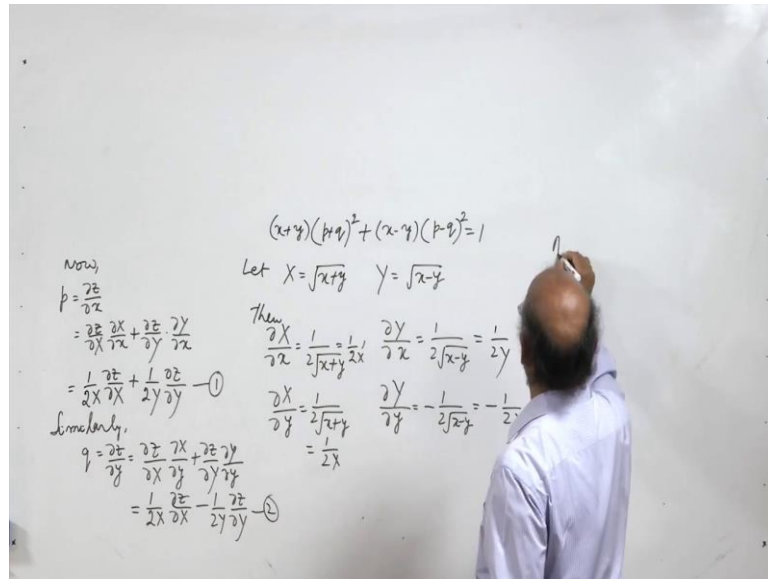 (x+y)(p+q)²+(x-y)(p-q)²=1
Let X=√x+y Y=√x-y
Then
∂X/∂x = 1/2√x+y = 1/2X ∂Y/∂x = 1/2√x-y = 1/2Y
∂X/∂y = 1/2√x+y ∂Y/∂y = -1/2√x-y = -1/2
= 1/2X
Now,
p = ∂z/∂x
= ∂z/∂X ∂X/∂x + ∂z/∂Y ∂Y/∂x
= 1/2X ∂z/∂X + 1/2Y ∂z/∂Y — ①
Similarly,
q = ∂z/∂y = ∂z/∂X ∂X/∂y + ∂z/∂Y ∂Y/∂y
= 1/2X ∂z/∂X - 1/2Y ∂z/∂Y — ②